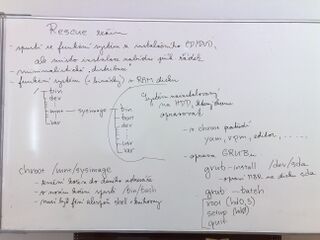 Rescue režim
- spustí se funkční systém z instalačního CD/DVD,
ale místo instalace nabídne přík. řádek
- minimalistická „distribuce"
- funkční systém (+ binárky) v RAM disku
bin
dev
mnt — sysimage
usr
bin
boot
dev
usr
Systém nainstalovaný
na HDD, který chceme
opravovat
- v chroot
yum, rpm, editor, .....
- oprava GRUBu
chroot /mnt/sysimage
- změní kořen do daného adresáře
- v novém kořenu spustí /bin/bash
- musí být v něm shell + knihovny
grub-install /dev/sda
- opraví MBR na disku sda
grub --batch
root (hd0,
setup (hd0)
quit